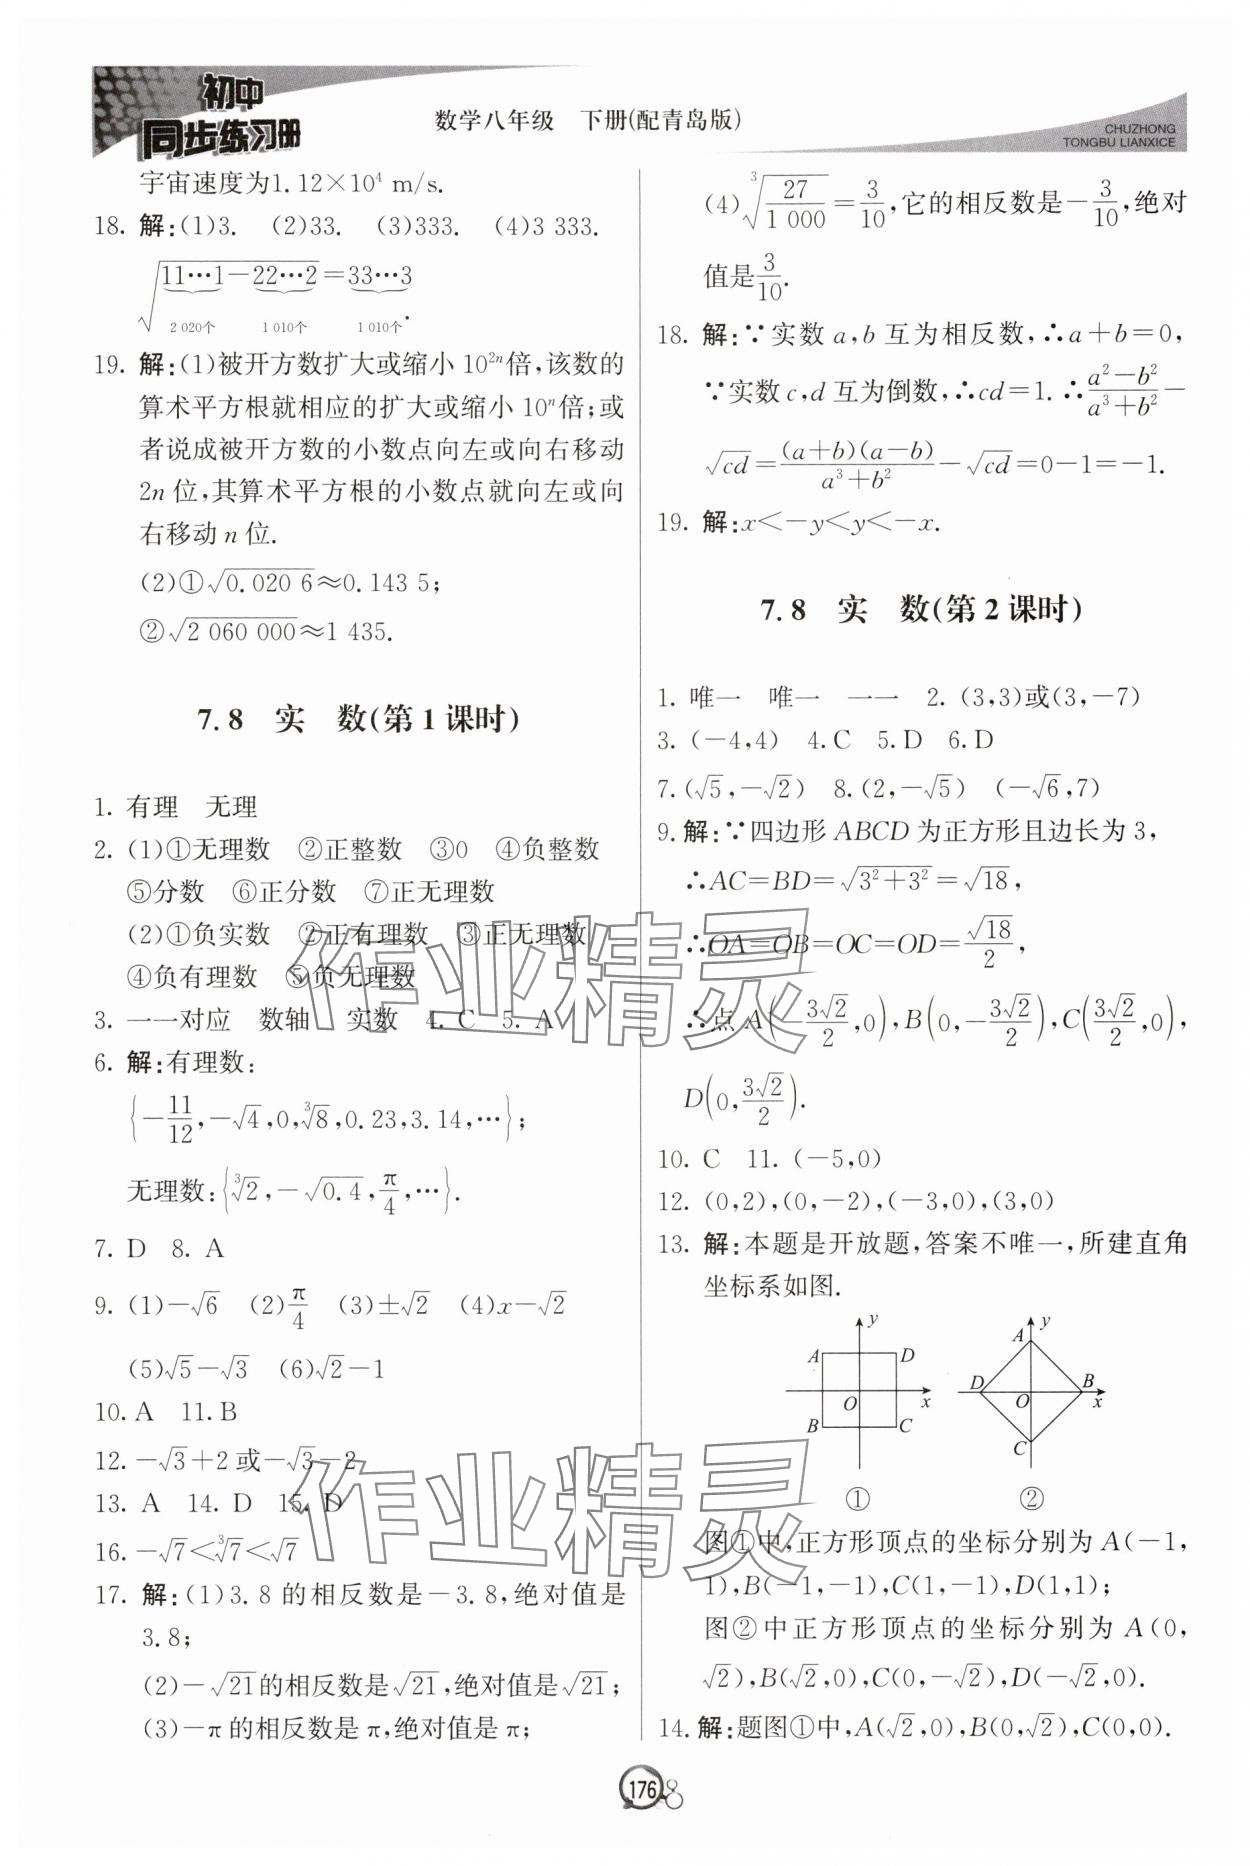 初中
同步练习册
数学八年级 下册(配青岛版)
CHUZHONG
TONGBU LIANXICE
宇宙速度为1.12×10⁴ m/s.
18. 解:(1)3. (2)33. (3)333. (4)3 333.
√(11…1−22…2)=33…3.
2 020个 1 010个 1 010个
19. 解:(1)被开方数扩大或缩小 10²ⁿ倍,该数的
算术平方根就相应的扩大或缩小 10ⁿ倍;或
者说成被开方数的小数点向左或向右移动
2n 位,其算术平方根的小数点就向左或向
右移动 n 位.
(2)①√(0.020 6)≈0.143 5;
②√(2 060 000)≈1 435.
7.8 实 数(第1课时)
1. 有理 无理
2. (1)①无理数 ②正整数 ③0 ④负整数
⑤分数 ⑥正分数 ⑦正无理数
(2)①负实数 ②正有理数 ③正无理数
④负有理数 ⑤负无理数
3. 一一对应 数轴 实数 4. C 5. A
6. 解:有理数:
{−11/12,−√4,0,∛8,0.23,3.14,…};
无理数:{∛2,−√0.4,π/4,…}.
7. D 8. A
9. (1)−√6 (2)π/4 (3)±√2 (4)x−√2
(5)√5−√3 (6)√2−1
10. A 11. B
12. −√3+2 或−√3−2
13. A 14. D 15. D
16. −√7<∛7<√7
17. 解:(1)3.8 的相反数是−3.8,绝对值是
3.8;
(2)−√21的相反数是√21,绝对值是√21;
(3)−π 的相反数是 π,绝对值是 π;
(4)∛(27/1 000)=3/10,它的相反数是−3/10,绝对
值是3/10.
18. 解:∵实数 a,b 互为相反数,∴a+b=0,
∵实数 c,d 互为倒数,∴cd=1.∴(a²−b²)/(a³+b²)−
√cd=(a+b)(a−b)/(a³+b²)−√cd=0−1=−1.
19. 解:x<−y<y<−x.
7.8 实 数(第2课时)
1. 唯一 唯一 一一 2. (3,3)或(3,−7)
3. (−4,4) 4. C 5. D 6. D
7. (√5,−√2) 8. (2,−√5) (−√6,7)
9. 解:∵四边形 ABCD 为正方形且边长为 3,
∴AC=BD=√(3²+3²)=√18,
∴OA=OB=OC=OD=√18/2,
∴点 A(−3√2/2,0),B(0,−3√2/2),C(3√2/2,0),
D(0,3√2/2).
10. C 11. (−5,0)
12. (0,2),(0,−2),(−3,0),(3,0)
13. 解:本题是开放题,答案不唯一,所建直角
坐标系如图.
y A D O x B C
①
y A D O B x C
②
图①中,正方形顶点的坐标分别为 A(−1,
1),B(−1,−1),C(1,−1),D(1,1);
图②中正方形顶点的坐标分别为 A(0,
√2),B(√2,0),C(0,−√2),D(−√2,0).
14. 解:题图①中,A(√2,0),B(0,√2),C(0,0).
176
作业精灵
作业精灵